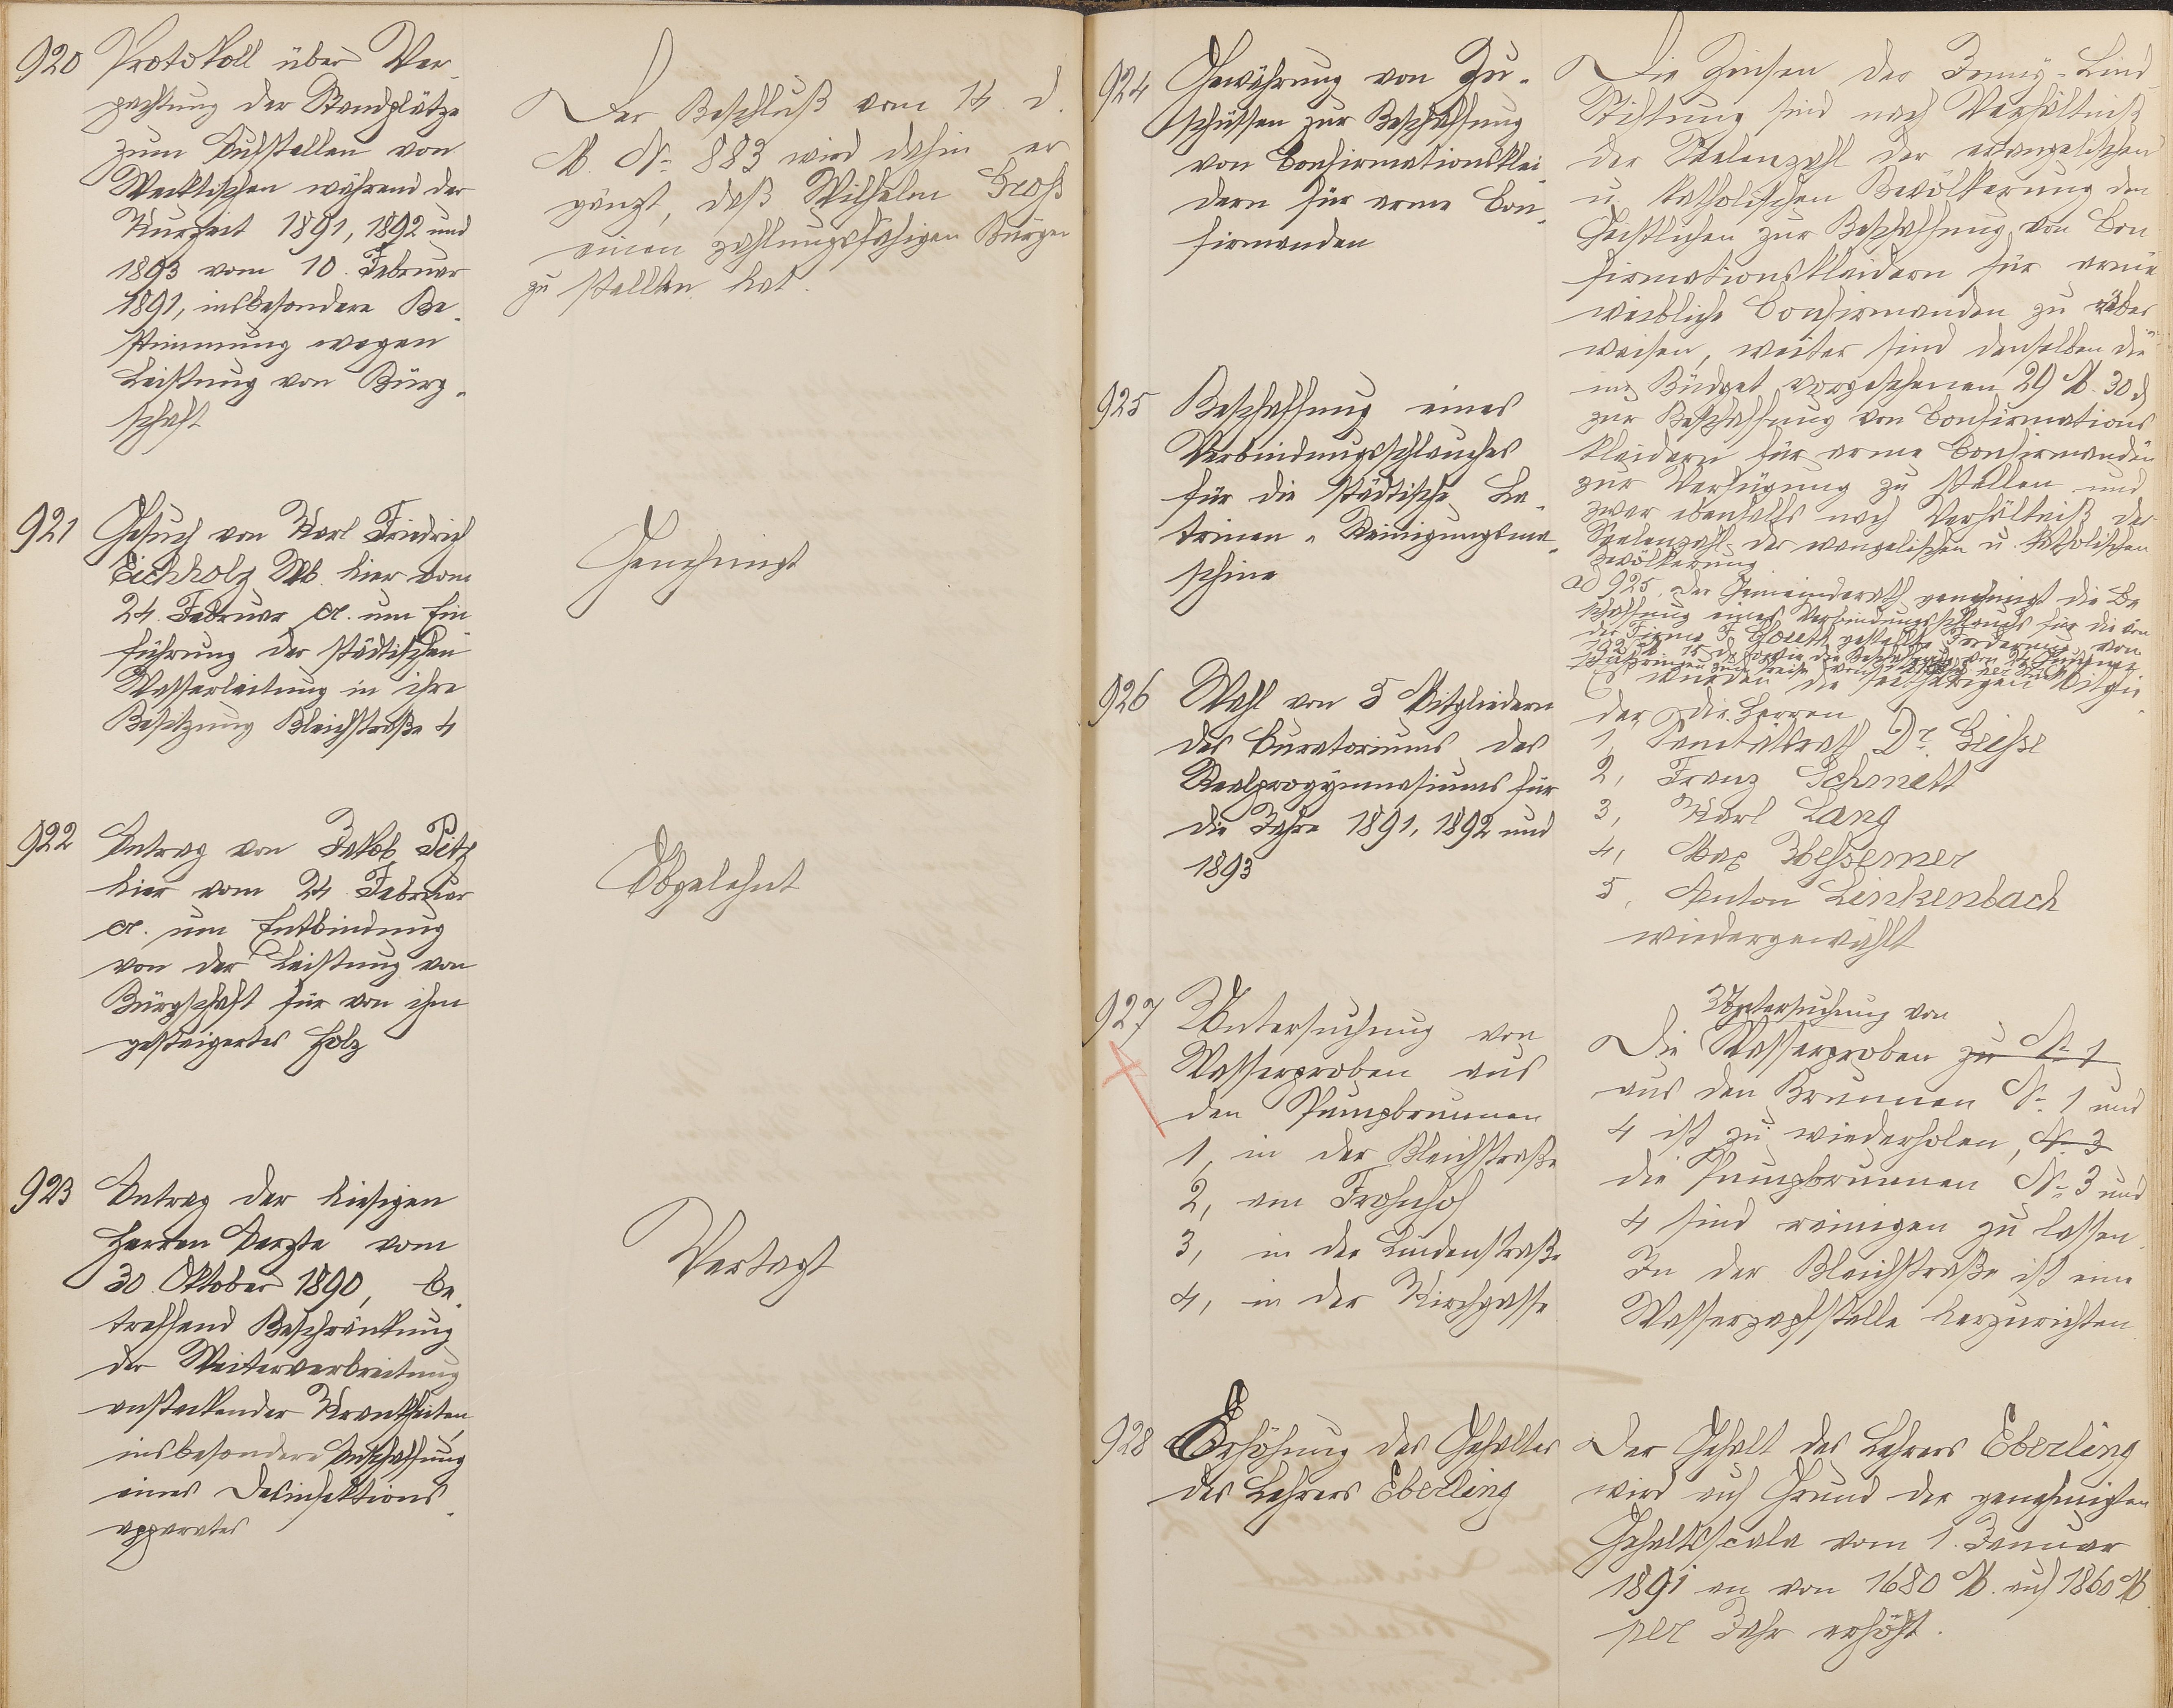 920 Protokoll über Ver-
pachtung der Standplätze
zum Aufstellen von
Wecktischen während der
Kurzeit 1891, 1892 und
1893 vom 10. Februar
1891, insbesondere Be-
stimmung wegen
Leistung von Bürg-
schaft
Der Beschluß vom 14. d.
M. No 883 wird dahin er
gänzt, daß Wilhelm Groß
einen zahlungsfähigen Bürgen
zu stellen hat.
921 Gesuch von Karl Friedrich
Eichholz Wb. hier vom
24. Februar cr. um Ein
führung der städtischen
Wasserleitung in ihre
Besitzung Bleichstraße 4
Genehmigt
922 Antrag von Jakob Petz
hier vom 24. Februar
cr. um Entbindung
von der Leistung von
Bürgschaft für von ihm
gesteigertes Holz
Abgelehnt
923 Antrag der hiesigen
Herren Aerzte vom
30. Oktober 1890, be-
treffend Beschränkung
der Weiterverbreitung
ansteckender Krankheiten,
insbesondere Anschaffung
eines Desinfektions-
apparates
Vertagt
924 Gewährung von Zu-
schüssen zur Beschaffung
von Confirmationsklei-
dern für arme Con-
firmanden
Die Zinsen der Jenny-Lind
Stiftung sind nach Verhältniß
der Seelenzahl der evangelischen
u. katholischen Bevölkerung den
Geistlichen zur Beschaffung von Con
firmationskleidern für arme
weibliche Confirmanden zu über
weisen, weiter sind denselben die
im Büdget vorgesehenen 29 M. 30 d
zur Beschaffung von Confirmations
kleidern für arme Confirmanden
zur Verfügung zu stellen und
zwar ebenfalls nach Verhältniß der
Seelenzahl der evangelischen u. katholischen
Bevölkerung
925 Beschaffung eines
Verbindungsschlauches
für die städtische La-
trinen-Reinigungsma-
schine
ad 925. Der Gemeinderath genehmigt die Be
schaffung eines Verbindungsschlauchs für die von
der Firma F. gestellte Forderung von
192 M 15 d sowie die Beschaffung von
926 Wahl von 5 Mitgliedern
des Curatoriums des
Realprogymnasiums für
die Jahre 1891, 1892 und
1893
Es wurden die seitherigen Mitglie-
der die Herren
1, Sanitätsrath Dr. Geisse
2, Franz Schmitt
3, Karl Lang
4, Max Hessemer
5, Anton Linkenbach
wiedergewählt
927 Untersuchung von
Wasserproben aus
den Pumpbrunnen
1, in der Bleichstraße
2, am Frohnhof
3, in der Lindenstraße
4, in der Kirchgasse
Untersuchung von
Die Wasserproben zu No 1
aus den Brunnen No 1 und
4 ist zu wiederholen, No 3
die Pumpbrunnen No 3 und
4 sind reinigen zu lassen.
In der Bleichstraße ist eine
Wasserzapfstelle herzurichten.
928 Erhöhung des Gehaltes
des Lehrers Eberling
Der Gehalt des Lehrers Eberling
wird auf Grund der genehmigten
Gehaltsscala vom 1. Januar
1891 an von 1680 M. auf 1860 M.
per Jahr erhöht.